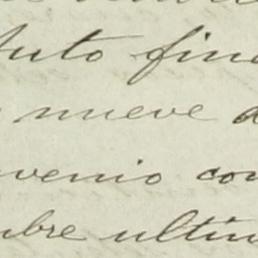 uto fin
nueve d
venio con
bre ultim